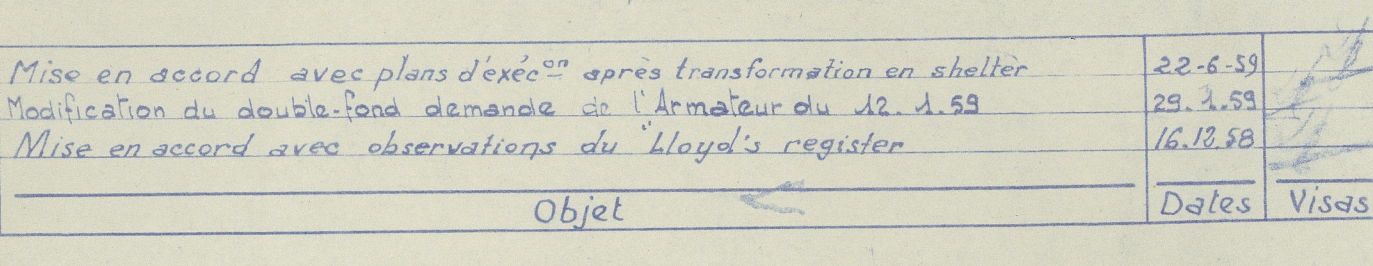 Mise en accord avec plans d'éxéc^on après transformation en shelter 22-6-59
Modification du double-fond demande de l'Armateur du 12.1.59 29.1.59
Mise en accord avec observations du "Lloyd's register 16.12.58
Objet Dates Visas